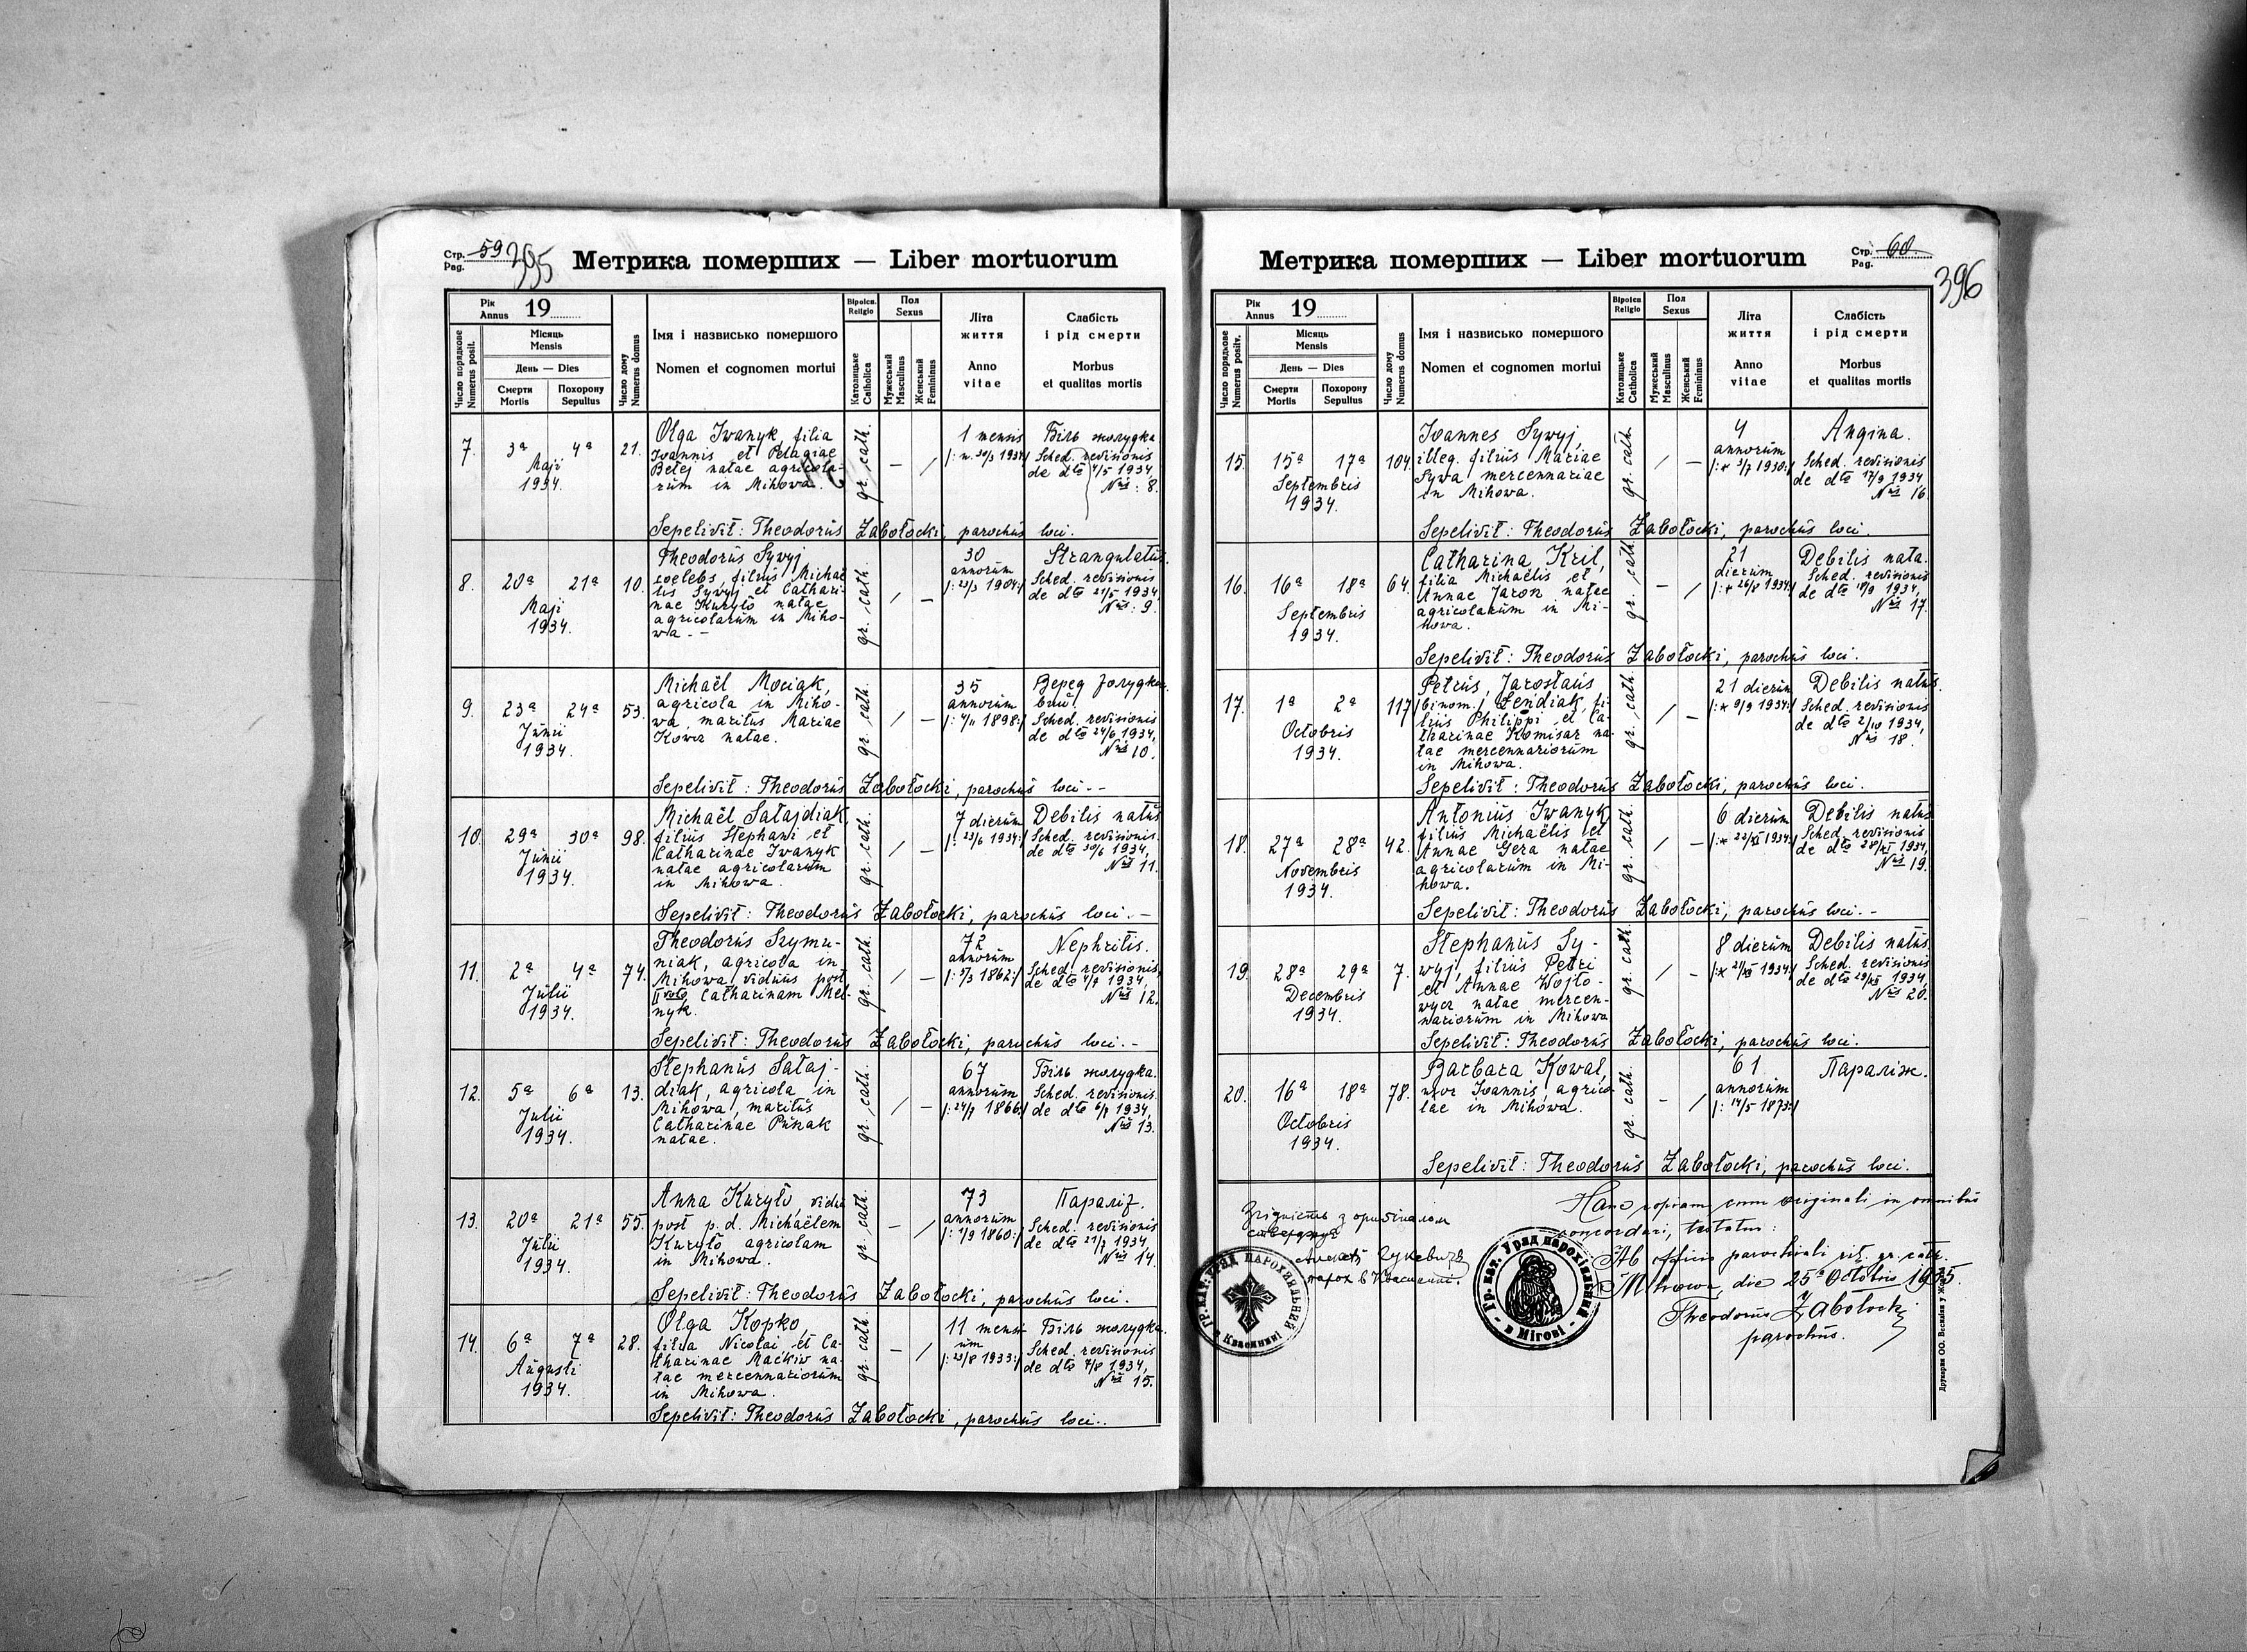 Стр. 59 395
Pag.
Метрика померших — Liber mortuorum
Рік
Annus 19
Місяць
Mensis
День — Dies
Число порядкове
Numerus posit.
Смерти
Mortis
Похорону
Sepultus
Число дому
Numerus domus
Імя і назвисько помершого
Nomen et cognomen mortui
Віроісп.
Religio
Католицьке
Catholica
Пол
Sexus
Мужеський
Masculinus
Женський
Femininus
Літа
життя
Anno
vitae
Слабість
і рід смерти
Morbus
et qualitas mortis
7. 3ª 4ª 21.
Maji
1934.
Olga Iwanyk, filia
Ioannis et Pelagiae
Betej natae agricola-
rum in Mihowa.
gr. cath.
— /
1 mensis
Біль жолудка.
Sched. revisionis
de dto 4/5 1934,
Nrus: 8.
Sepelivit: Theodorus Zabołocki, parochus loci.
8. 20ª 21ª 10.
Maji
1934.
Theodorus Sywyj
coelebs, filius Michaë
lis Sywyj et Cathari-
nae Kuryło natae
agricolarum in Miho-
wa.-
gr. cath.
/ —
30
annorum
/: 23/3 1904:/
Strangulatus.
Sched. revisionis
de dto 21/5 1934,
Nrus: 9.
9. 23ª 24ª 53.
Junii
1934.
Michaël Mociak,
agricola in Miho-
wa, maritus Mariae
Kowcz natae.
gr. cath.
/ —
35
annorum
Sched. revisionis
de dto 24/6 1934,
Nrus 10.
Sepelivit: Theodorus Zabołocki, parochus loci.--
10. 29ª 30ª 98.
Junii
1934.
Michaël Sałajdiak,
filius Stephani et
Catharinae Iwanyk
natae agricolarum
in Mihowa.
gr. cath.
/ —
7 dierum
/: 23/6 1934:/
Debilis natus
Sched. revisionis
de dto 30/6 1934,
Nrus 11.
Sepelivit: Theodorus Zabołocki, parochus loci.-
11. 2ª 4ª 74.
Julii
1934.
Theodorus Szymu-
niak, agricola in
Mihowa, viduus post
II voto Catharinam Mel-
nyk.
gr. cath.
/ —
72
annorum
/: 5/3 1862:/
Nephritis.
Sched. revisionis
de dto 4/7 1934,
Nrus 12.
Sepelivit: Theodorus Zabołocki, parochus loci.-
12. 5ª 6ª 13.
Julii
1934.
Stephanus Sałaj-
diak, agricola in
Mihowa, maritus
Catharinae Pusak
natae.
gr. cath.
/ —
67
annorum
/: 24/7 1866:/
Біль жолудка.
Sched. revisionis
de dto 6/7 1934,
Nrus 13.
13. 20ª 21ª 55.
Julii
1934.
Anna Kuryło, vidua
post p. d. Michaëlem
Kuryło agricolam
in Mihowa.
gr. cath.
— /
73
annorum
/: 1/9 1860:/
Параліż.
Sched. revisionis
de dto 21/7 1934
Nrus 14.
Sepelivit: Theodorus Zabołocki, parochus loci.
14. 6ª 7ª 28.
Augusti
1934.
Olga Kopko,
filia Nicolai et Ca-
tharinae Maćkiw na-
tae mercennariorum
in Mihowa.
gr. cath.
— /
11 mensi
um
/: 23/8 1933:/
Біль жолудка.
Sched. revisionis
de dto 7/8 1934,
Nrus 15.
Sepelivit: Theodorus Zabołocki, parochus loci..
Метрика померших — Liber mortuorum
Стр. 60. 396
Pag.
Рік
Annus 19
Місяць
Mensis
День — Dies
Число порядкове
Numerus positv.
Смерти
Mortis
Похорону
Sepultus
Число дому
Numerus domus
Імя і назвисько помершого
Nomen et cognomen mortui
Віроісп
Religio
Католицьке
Catholica
Пол
Sexus
Мужеський
Masculinus
Женський
Femininus
Літа
життя
Anno
vitae
Слабість
і рід смерти
Morbus
et qualitas mortis
15. 15ª 17ª 104.
Septembris
1934.
Ioannes Sywyj,
illeg. filius Mariae
Sywa mercennariae
in Mihowa.
gr. cath.
/ —
4
annorum
/:* 3/7 1930:/
Angina.
Sched. revisionis
de dto 17/9 1934
Nrus 16
Sepelivit: Theodorus Zabołocki, parochus loci.
16. 16ª 18ª 64.
Septembris
1934.
Catharina Kril,
filia Michaëlis et
Annae Jarok natae
agricolarum in Mi-
howa.
gr. cath.
— /
21
dierum
/:* 26/8 1934:/
Debilis nata.
Sched. revisionis
de dto 18/9 1934,
Nrus 17.
Sepelivit: Theodorus Zabołocki, parochus loci.
17. 1ª 2ª 117
Octobris
1934.
Petrus, Jarosłaus
/binom./ Lendiak, fi-
lius Philippi et Ca-
tharinae Komisar na-
tae mercennariorum
in Mihowa.
gr. cath.
/ —
21 dierum
/:* 9/9 1934:/
Debilis natus.
Sched. revisionis
de dto 2/10 1934,
Nrus 18.
Sepelivit: Theodorus Zabołocki, parochus loci.
18. 27ª 28ª 42.
Novembris
1934.
Antonius Iwanyk
filius Michaëlis et
Annae Gera natae
agricolarum in Mi-
howa.
gr. cath.
/ —
6 dierum
/:* 22/XI 1934:/
Debilis natus
Sched. revisionis
de dto 28/XI 1934,
Nrus 19.
Sepelivit: Theodorus Zabołocki, parochus loci.-
19. 28ª 29ª 7.
Decembris
1934.
Stephanus Sy-
wyj, filius Petri
et Annae Wojto-
wycz natae mercen-
nariorum in Mihowa
gr. cath.
/ —
8 dierum
/:* 21/XII 1934:/
Debilis natus.
Sched. revisionis
de dto 29/XII 1934,
Nrus 20.
Sepelivit: Theodorus Zabołocki, parochus loci.
20. 16ª 18ª 78.
Octobris
1934.
Barbara Kowal,
uxor Ioannis, agrico
lae in Mihowa.
gr. cath.
— /
61
annorum
/: 14/5 1873:/
Параліж.
Sepelivit: Theodorus Zabołocki, parochus loci.
Згідність з оригіналом
стверджує
парох в Квасинині.
ГР.КАТ. УРЯД ПАРОХІЯЛЬНИЙ в Квасинині
Гр. кат. Уряд парохіяльний - в Мігові -
Hanc copiam cum originali in omnibus
concordari, testatur:
Ab officio parochiali rit. gr. cath.
Mihowa, die 25ª Octobris 1935.
Theodorus Zabołocki
parochus.